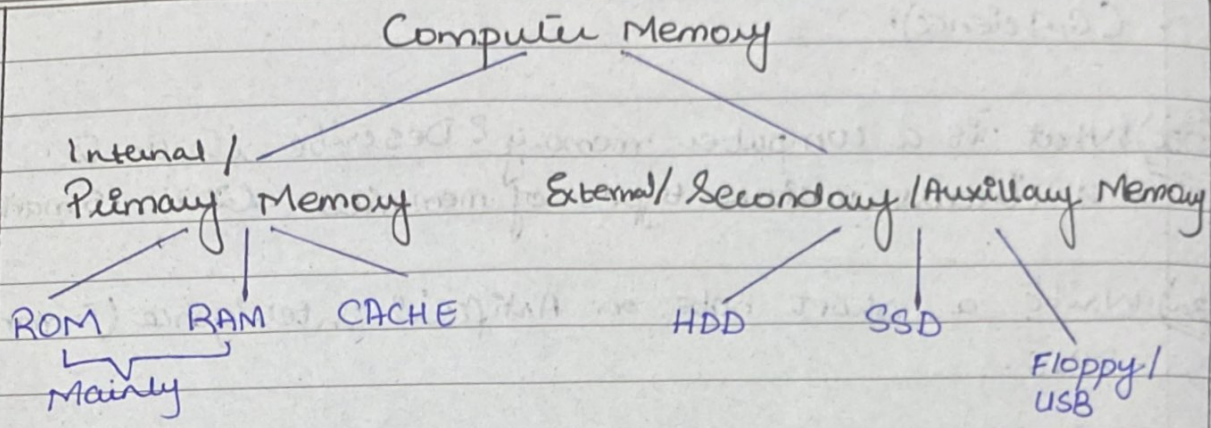 Computer Memory
Internal /
Primary Memory
External/ Secondary /Auxillary Memory
ROM RAM CACHE
HDD SSD
Mainly
Floppy/
USB